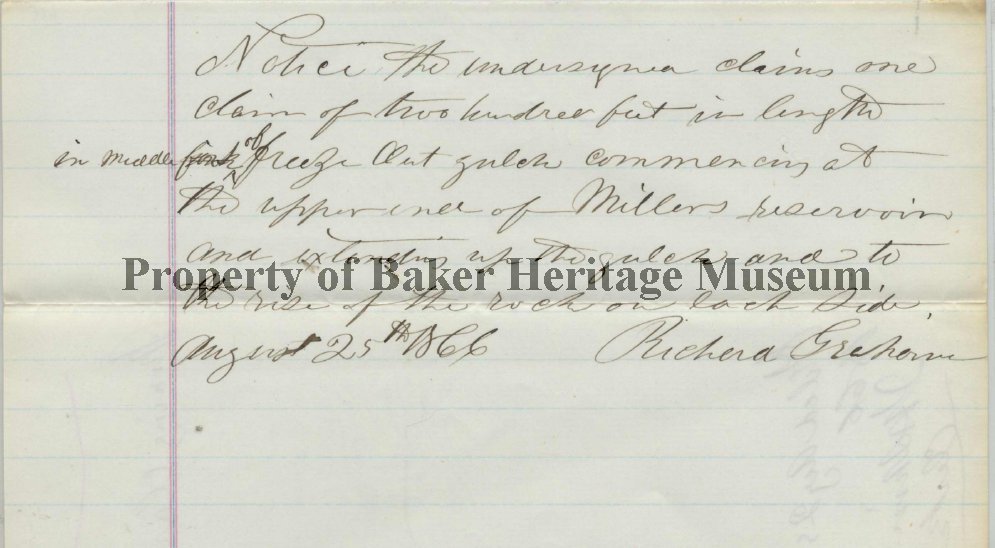 Notice the undersigned claims one
claim of two hundred feet in length
in middle fork of freeze Out gulch commencing at
the upper end of Millers reservoir
and extending up the gulch and to
Property of Baker Heritage Museum
the rise of the rock on each side.
August 25th 1866 Richard Grahame